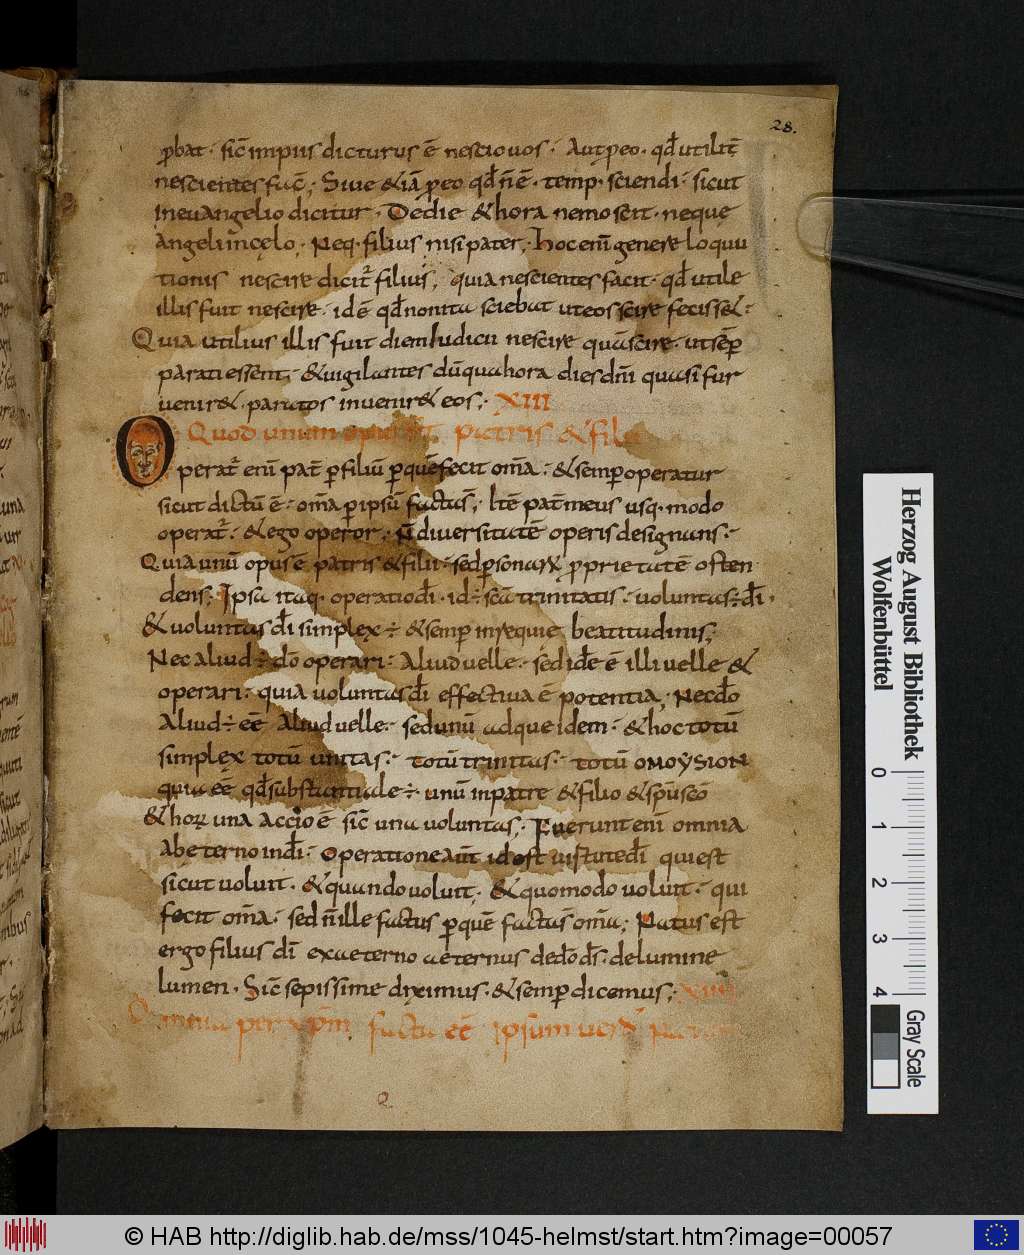 28.
ꝓbat · sic̄ impiis dicturus ē nescio uos · Aut ꝓ eo · qđ utilit̄
nescientes fuc̄; Siue & iā ꝓ eo qđ n̄ ē · temp· sciendi · sicut
in euangelio dicitur · De die & hora nemo scit · neque
angeli in cęlo · Neq· filius nisi pater; Hoc eni genere loquu
tionis nescire dicit̄ filius; quia nescientes facit · qđ utile
illis fuit nescire · id ē qđ non ita sciebat ut eos scire fecisset ·
Quia utilius illis fuit diem iudicii nescire quā scire · ut sēp
parati essent; & uigilantes dū qua hora dies dn̄i quasi fur
uenir& paratos inuenir& eos; XIII
Quod unum opus sit patris & filii
Operat̄ eni pat̄ ꝑ filiū ꝑ quē fecit om̄a · & semp operatur
sicut dictū ē · om̄a ꝑ ipsū factu s̄; Itē pat̄ meus usq· modo
operat̄ · & ego operor · n̄ diuersitatē operis designans ·
Quia unū opus ē patris & filii · sed ꝑsonarꝝ ꝓprietatē osten
dens; Ipsa itaq· operatio dī · id· scā trinitatis · uoluntas ÷ dī ·
& uoluntas dī simplex ÷ & semp in requie beatitudinis;
Nec aliud ÷ dō operari · Aliud uelle · sed idē ē illi uelle &
operari · quia uoluntas dī effectiua ē potentia; Nec dō
Aliud ÷ eē Aliud uelle · sed unū adque idem · & hoc totū
simplex totū unitas · totū trinitas · totū OMOYSION
quia eē qđ substantiale ÷ unū in patre & filio & spū scō
& horꝝ una accio ē sic̄ una uoluntas; Fuerunt eni omnia
ab eterno in dī · Operatione aūt id est uirtute dī qui est
sicut uoluit · & quando uoluit; & quomodo uoluit · qui
fecit om̄a · sed n̄ ille factus ꝑ quē facta s̄ om̄a; Natus est
ergo filius dī ex aeterno aeternus de dō ds̄ · de lumine
lumen · Sic̄ sepissime diximus · & semp dicemus; XIIII
Omnia per xp̄m facta eē ipsum uerbū
Q
Herzog August Bibliothek
Wolfenbüttel
0 1 2 3 4
Gray Scale
© HAB http://diglib.hab.de/mss/1045-helmst/start.htm?image=00057